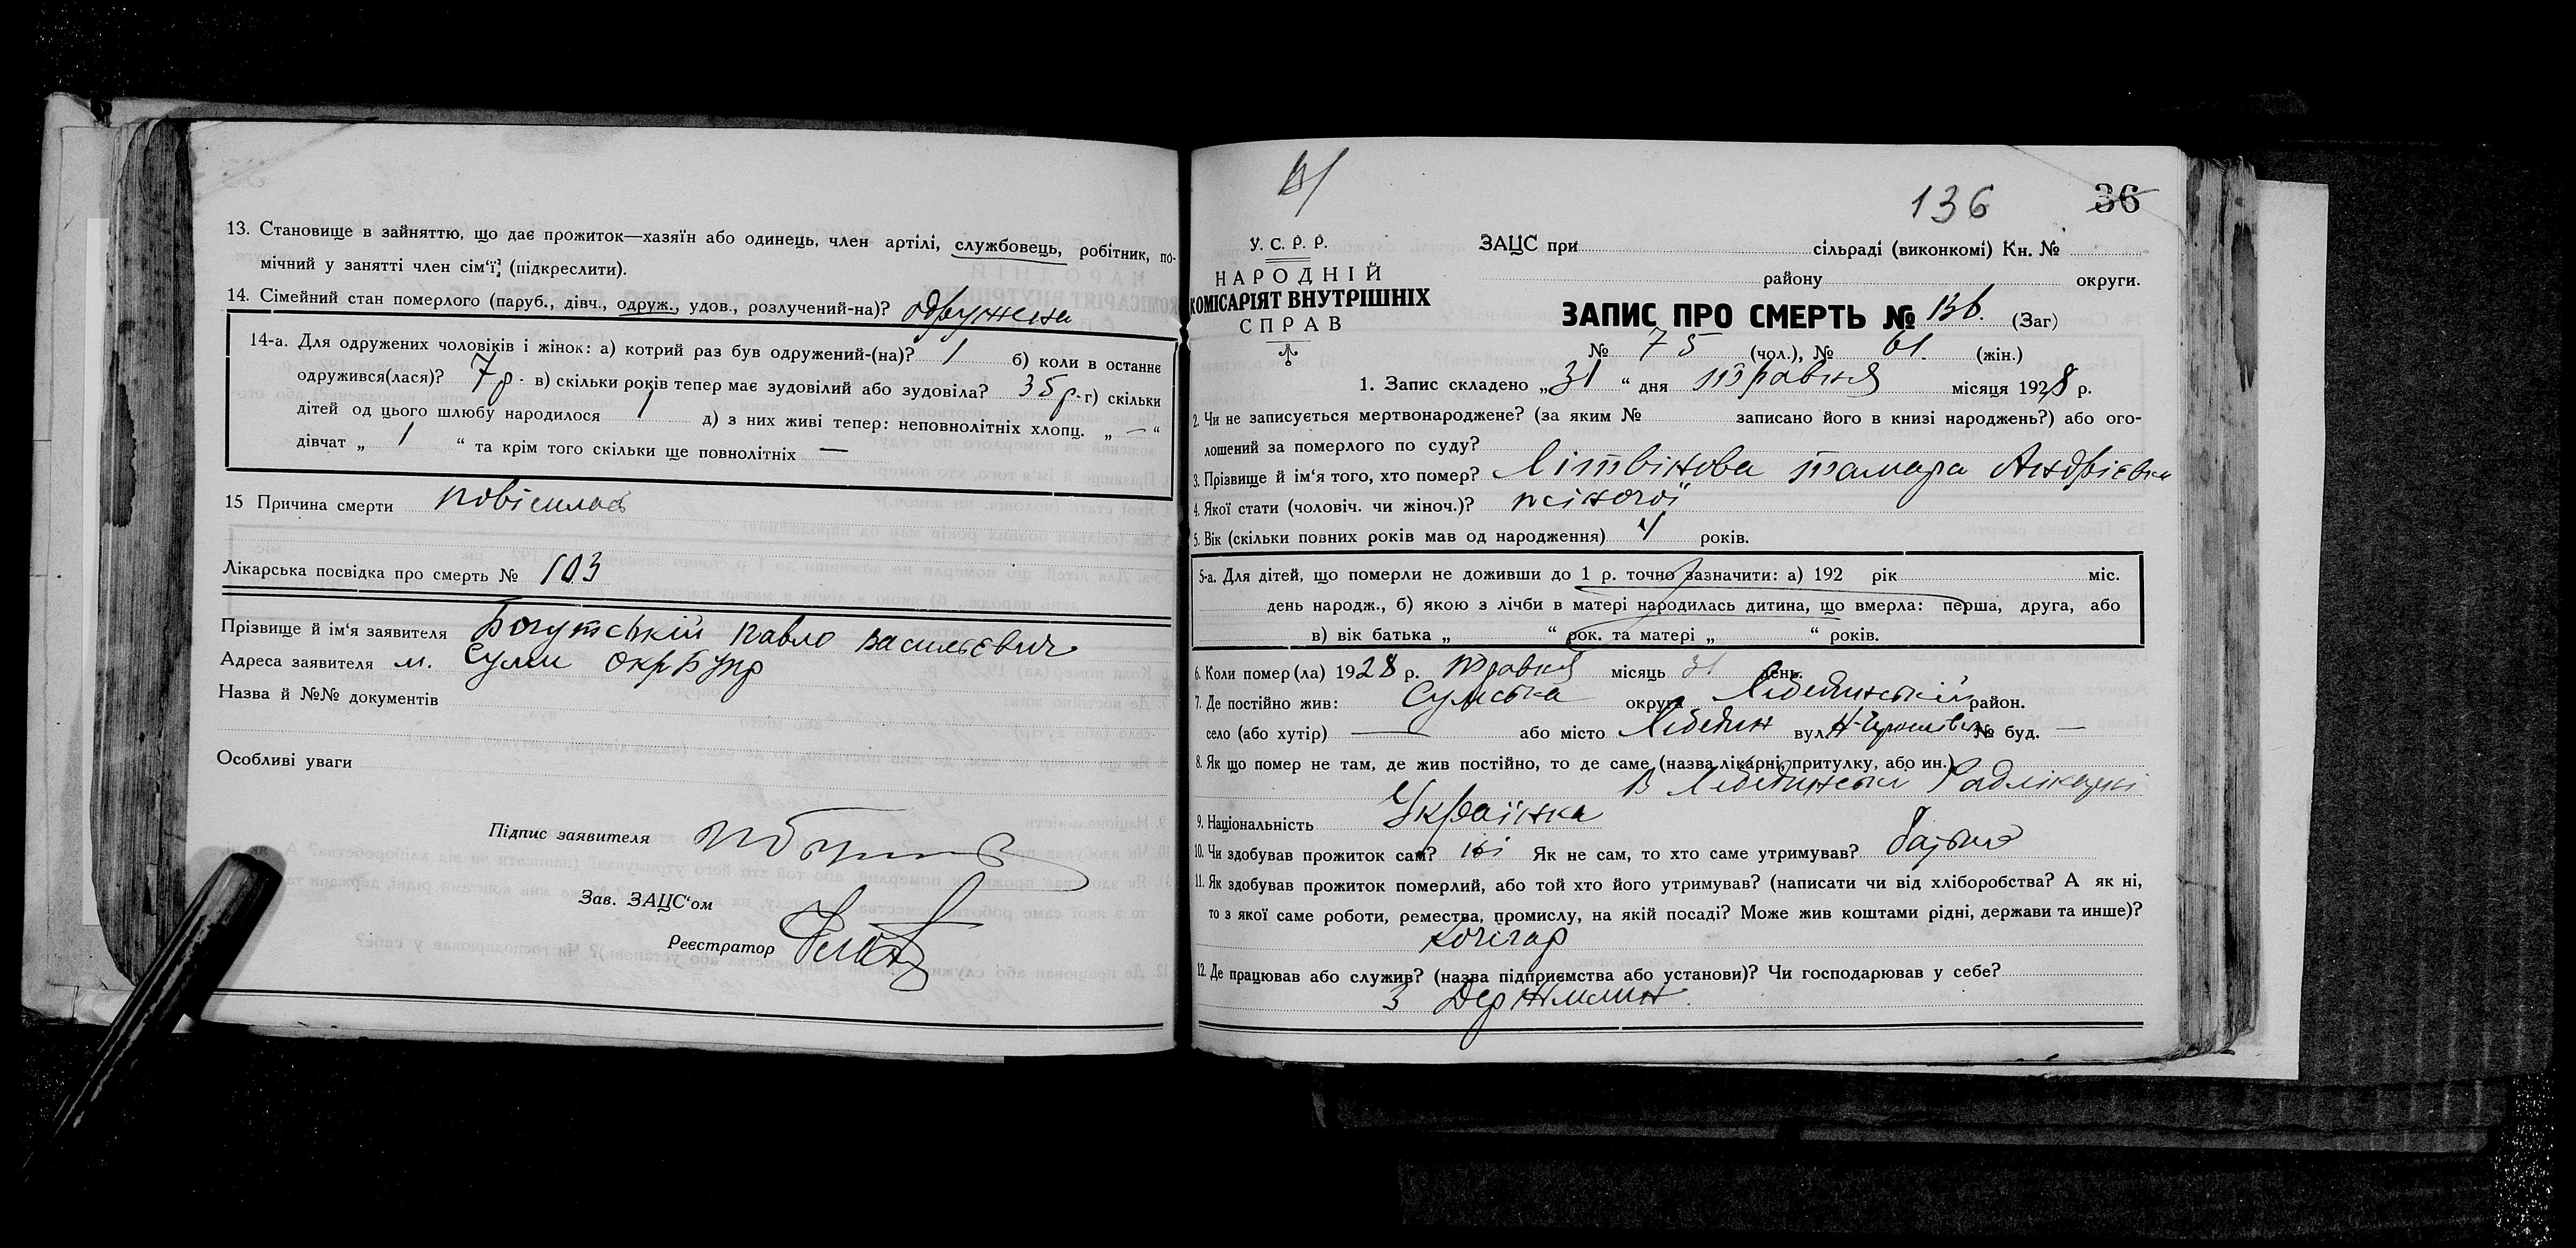 13. Становище в зайняттю, що дає прожиток—хазяїн або одинець, член артілі, службовець, робітник, по-
мічний у занятті член сім‘ї, (підкреслити).
14. Сімейний стан померлого (паруб., дівч., одруж., удов., розлучений-на)? одружена
14-а. Для одружених чоловіків і жінок: а) котрий раз був одружений-(на)? 1 б) коли в останнє
одружився(лася)? 7 р. в) скільки років тепер має зудовілий або зудовіла? 35 р. г) скільки
дітей од цього шлюбу народилося 1 д) з них живі тепер: неповнолітніх хлопц. „ — “
дівчат „ 1 “ та крім того скільки ще повнолітніх —
15 Причина смерти повісилась
Лікарська посвідка про смерть № 103
Прізвище й ім‘я заявителя Богутській Павло Васильєвич
Адреса заявителя м. Суми ОкрБупр
Назва й №№ документів
Особливі уваги
Підпис заявителя
Зав. ЗАЦС‘ом
Реєстратор
136 36
У. С. Р. Р.
НАРОДНІЙ
КОМІСАРІЯТ ВНУТРІШНІХ
СПРАВ
ЗАЦС при сільраді (виконкомі) Кн. №
району округи.
ЗАПИС ПРО СМЕРТЬ № 136. (Заг)
№ 75 (чол.), № 61. (жін.)
1. Запис складено „31 “ дня травня місяця 1928 р.
2. Чи не записується мертвонароджене? (за яким № записано його в книзі народжень?) або ого-
лошений за померлого по суду?
3. Прізвище й ім‘я того, хто помер? Літвінова Тамара Андрієвна
4. Якої стати (чоловіч. чи жіноч.)? жіночої
5. Вік (скільки повних років мав од народження) 4 років.
5-а. Для дітей, що померли не доживши до 1 р. точно зазначити: а) 192 рік міс.
день народж., б) якою з лічби в матері народилась дитина, що вмерла: перша, друга, або
в) вік батька „ “ рок. та матері „ “ років.
6. Коли помер(ла) 1928 р. травня місяць 31 день.
7. Де постійно жив: Сумська округа Лебединській район.
село (або хутір) — або місто Лебедин вул. № буд. —
8. Як що помер не там, де жив постійно, то де саме (назва лікарні, притулку, або ин.)
В Лебединській Радлікарні
9. Національність Українка
10. Чи здобував прожиток сам? ні Як не сам, то хто саме утримував? батько
11. Як здобував прожиток померлий, або той хто його утримував? (написати чи від хліборобства? А як ні,
то з якої саме роботи, ремества, промислу, на якій посаді? Може жив коштами рідні, держави та инше)?
кочегар
12. Де працював або служив? (назва підприємства або установи)? Чи господарював у себе?
3 Держмлин.